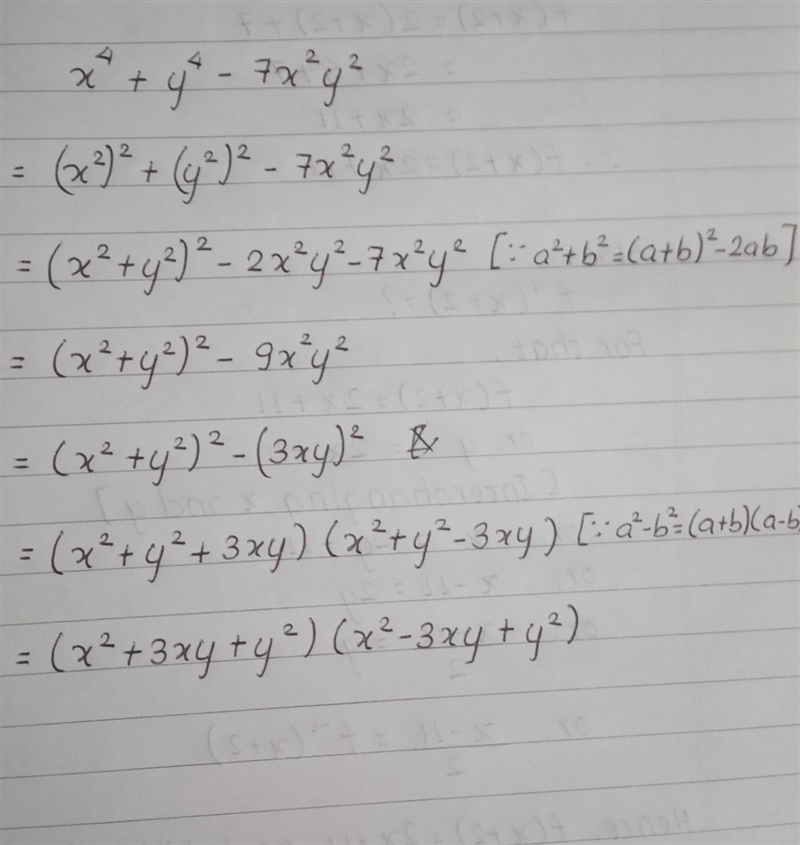 x⁴ + y⁴ - 7x²y²
= (x²)² + (y²)² - 7x²y²
= (x²+y²)² - 2x²y² - 7x²y² [∵ a²+b²=(a+b)²-2ab]
= (x²+y²)² - 9x²y²
= (x²+y²)² - (3xy)²
= (x²+y²+3xy) (x²+y²-3xy) [∵ a²-b²=(a+b)(a-b)
= (x²+3xy+y²) (x²-3xy+y²)